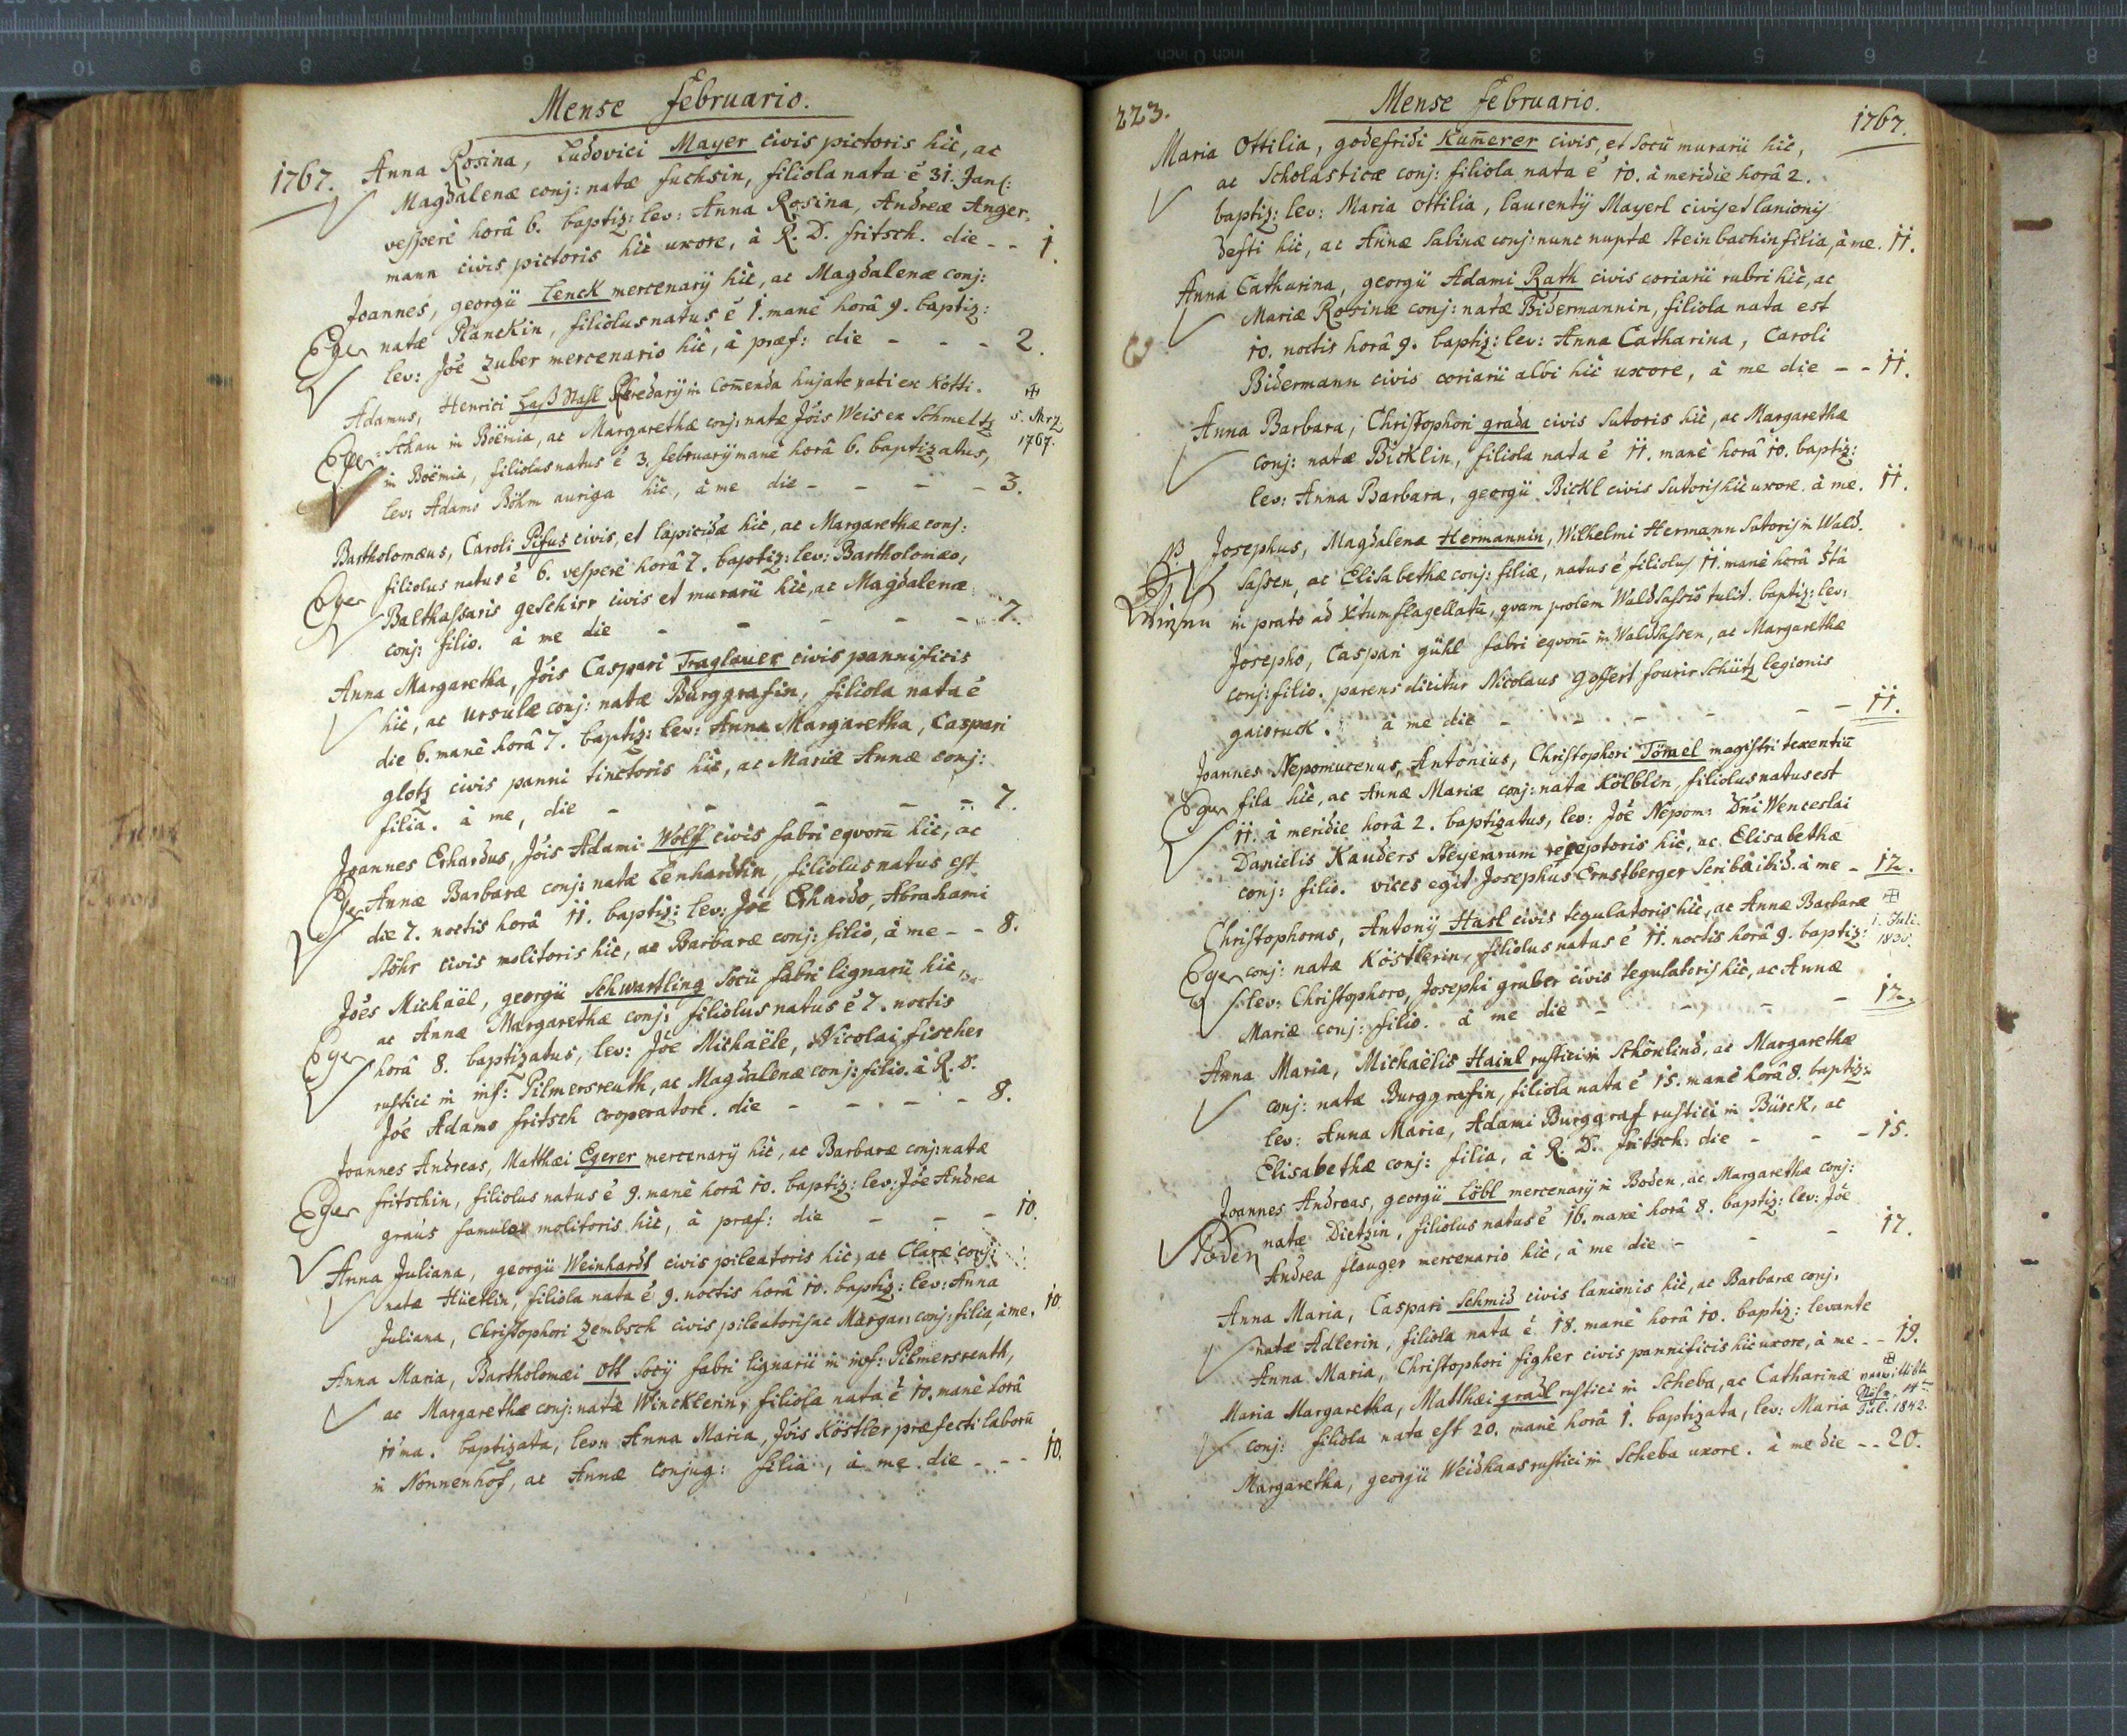 Mense februario.
1767. Anna Rosina, Ludovici Mayer civis pictoris hìc, ac
Magdalenæ conj: natæ fuchsin, filiola nata ê 31. Jan:
vesperè horâ 6. baptiz: lev: Anna Rosina, Andreæ Anger-
mann civis pictoris hìc uxore, à R. D. fritsch. die - - 1.
Joannes, georgii Lenck mercenarÿ hìc, ac Magdalenæ conj:
Eger natæ Planckin, filiolus natus ê 1. manè horâ 9. baptiz:
lev: Jôe Zuber mercenario hìc, à præf: die - - - 2.
Adamus, Henrici in Com̄enda hujate nati ex Kotti-
Eger schau in Boëmia, ac Margarethæ conj: natæ Jôis Weis ex Schmeltz
5. Mrz
1767.
in Boëmia, filiolus natus ê 3. februarÿ manè horâ 6. baptizatus,
lev: Adamo Böhm auriga hìc, à me die - - - - 3.
Bartholomæus, Caroli Pifus civis, et lapicidæ hìc, ac Margarethæ conj:
Eger filiolus natus ê 6. vesperè horâ 7. baptiz: lev: Bartholomæo,
Balthassaris geschirr civis et murarii hìc, ac Magdalenæ
conj: filio. à me die - - - - - 7.
Anna Margaretha, Jôis Caspari Traglauer civis pannificis
hìc, ac Ursulæ conj: natæ Burggrafin, filiola nata ê
die 6. manè horâ 7. baptiz: lev: Anna Margaretha, Caspari
glotz civis panni tinctoris hìc, ac Mariæ Annæ conj:
filia. à me, die - - - - - 7.
Joannes Erhardus, Jôis Adami Wolff civis fabri eqvorū hìc, ac
Eger Annæ Barbaræ conj: natæ Lenhardtin, filiolus natus est
die 7. noctis horâ 11. baptiz: lev: Jôe Erhardo, Abrahami
Stöhr civis molitoris hìc, ac Barbaræ conj: filio, à me - - 8.
Jôes Michaël, georgii Schwartling Socii fabri lignarii hìc,
ac Annæ Margarethæ conj: filiolus natus ê 7. noctis
Eger horâ 8. baptizatus, lev: Jôe Michaële, Nicolai fischer
rustici in inf: Pilmersreuth, ac Magdalenæ conj: filio. à R. D.
Jôe Adamo fritsch cooperatore. die - - - - 8.
Joannes Andreas, Matthæi Egerer mercenarÿ hìc, ac Barbaræ conj: natæ
Eger fritschin, filiolus natus ê 9. manè horâ 10. baptiz: lev: Jôe Andrea
graüs famulo molitoris hìc, à præf: die - - - 10.
Anna Juliana, georgii Weinhardt civis pileatoris hìc, ac Claræ conj:
natæ Hüetlin, filiola nata ê 9. noctis horâ 10. baptiz: lev: Anna
Juliana, Christophori Zembsch civis pileatoris ac Margar: conj: filia, à me. 10.
Anna Maria, Bartholomæi Ott Socÿ fabri lignarii in inf: Pilmersreuth,
ac Margarethæ conj: natæ Wincklerin, filiola nata ê 10. manè horâ
11ma. baptizata, lev: Anna Maria, Jôis Köstler præfecti laborū
in Nonnenhof, ac Annæ conjug: filia, à me die - - - 10.
223. Mense februario. 1767.
Maria Ottilia, godefridi Kum̄erer civis, et Socii murarii hìc,
ac Scholasticæ conj: filiola nata ê 10. à meridie horâ 2.
baptiz: lev: Maria Ottilia, laurentÿ Mayerl civis et lanionis
defti hìc, ac Annæ Sabinæ conj: nunc nuptæ Steinbachin filia, à me. 11.
Anna Catharina, georgii Adami Rath civis coriarii rubri hìc, ac
Mariæ Rosinæ conj: natæ Bidermannin, filiola nata est
10. noctis horâ 9. baptiz: lev: Anna Catharina, Caroli
Bidermann civis coriarii albi hìc uxore, à me die - - 11.
Anna Barbara, Christophori grada civis Sutoris hìc, ac Margarethæ
conj: natæ Bicklin, filiola nata ê 11. manè horâ 10. baptiz:
lev: Anna Barbara, georgii Bickl civis Sutoris hìc uxore. à me. 11.
Josephus, Magdalena Hermannin, Wilhelmi Hermann Sutoris in Wald-
Sassen, ac Elisabethæ conj: filiæ, natus ê filiolus 11. manè horâ 5tâ
in prato ad Xtum flagellatū, qvam prolem Waldsassiō tulit. baptiz: lev:
Josepho, Caspari gühl fabri eqvorū in Waldsassen, ac Margarethæ
conj: filio. parens dicitur Nicolaus goffert fourir Schütz legionis
gaisruck. à me die - - - - - 11.
Joannes Nepomucenus, Antonius, Christophori Tömel magistri texentiū
Eger fila hìc, ac Annæ Mariæ conj: nata Kölblin, filiolus natus est
11. à meridie horâ 2. baptizatus, lev: Jôe Nepom: Dn̄i Wenceslai
Danielis Kauders Steyerarum receptoris hìc, ac Elisabethæ
conj: filio. vices egit Josephus Ernstberger Scriba ibid. à me - 12.
Christophorus, Antonÿ Hasl civis tegulatoris hìc, ac Annæ Barbaræ
1. Juli
Eger conj: natæ Köstlerin, filiolus natus ê 11. noctis horâ 9. baptiz:
lev: Christophoro, Josephi gruber civis tegulatoris hìc, ac Annæ
Mariæ conj: filio. à me die - - - - 12.
Anna Maria, Michaëlis Hainl rustici in Schönlind, ac Margarethæ
conj: natæ Burggrafin, filiola nata ê 15. manè horâ 8. baptiz:
lev: Anna Maria, Adami Burggraf rustici in Bürck, ac
Elisabethæ conj: filia, à R. D. fritsch: die - - - 15.
Joannes Andreas, georgii Löbl mercenarÿ in Boden, ac Margarethæ conj:
Boden natæ Dietzin, filiolus natus ê 16. manè horâ 8. baptiz: lev: Jôe
Andrea flauger mercenario hìc, à me die - - - 17.
Anna Maria, Caspari Schmid civis lanionis hìc, ac Barbaræ conj:
natæ Adlerin, filiola nata ê 18. manè horâ 10. baptiz: levante
Anna Maria, Christophori figher civis pannificis hìc uxore, à me - - 19.
Maria Margaretha, Matthæi gradl rustici in Scheba, ac Catharinæ
Jul. 1842.
conj: filiola nata est 20. manè horâ 1. baptizata, lev: Maria
Margaretha, georgii Weidhaas rustici in Scheba uxore. à me die - - 20.